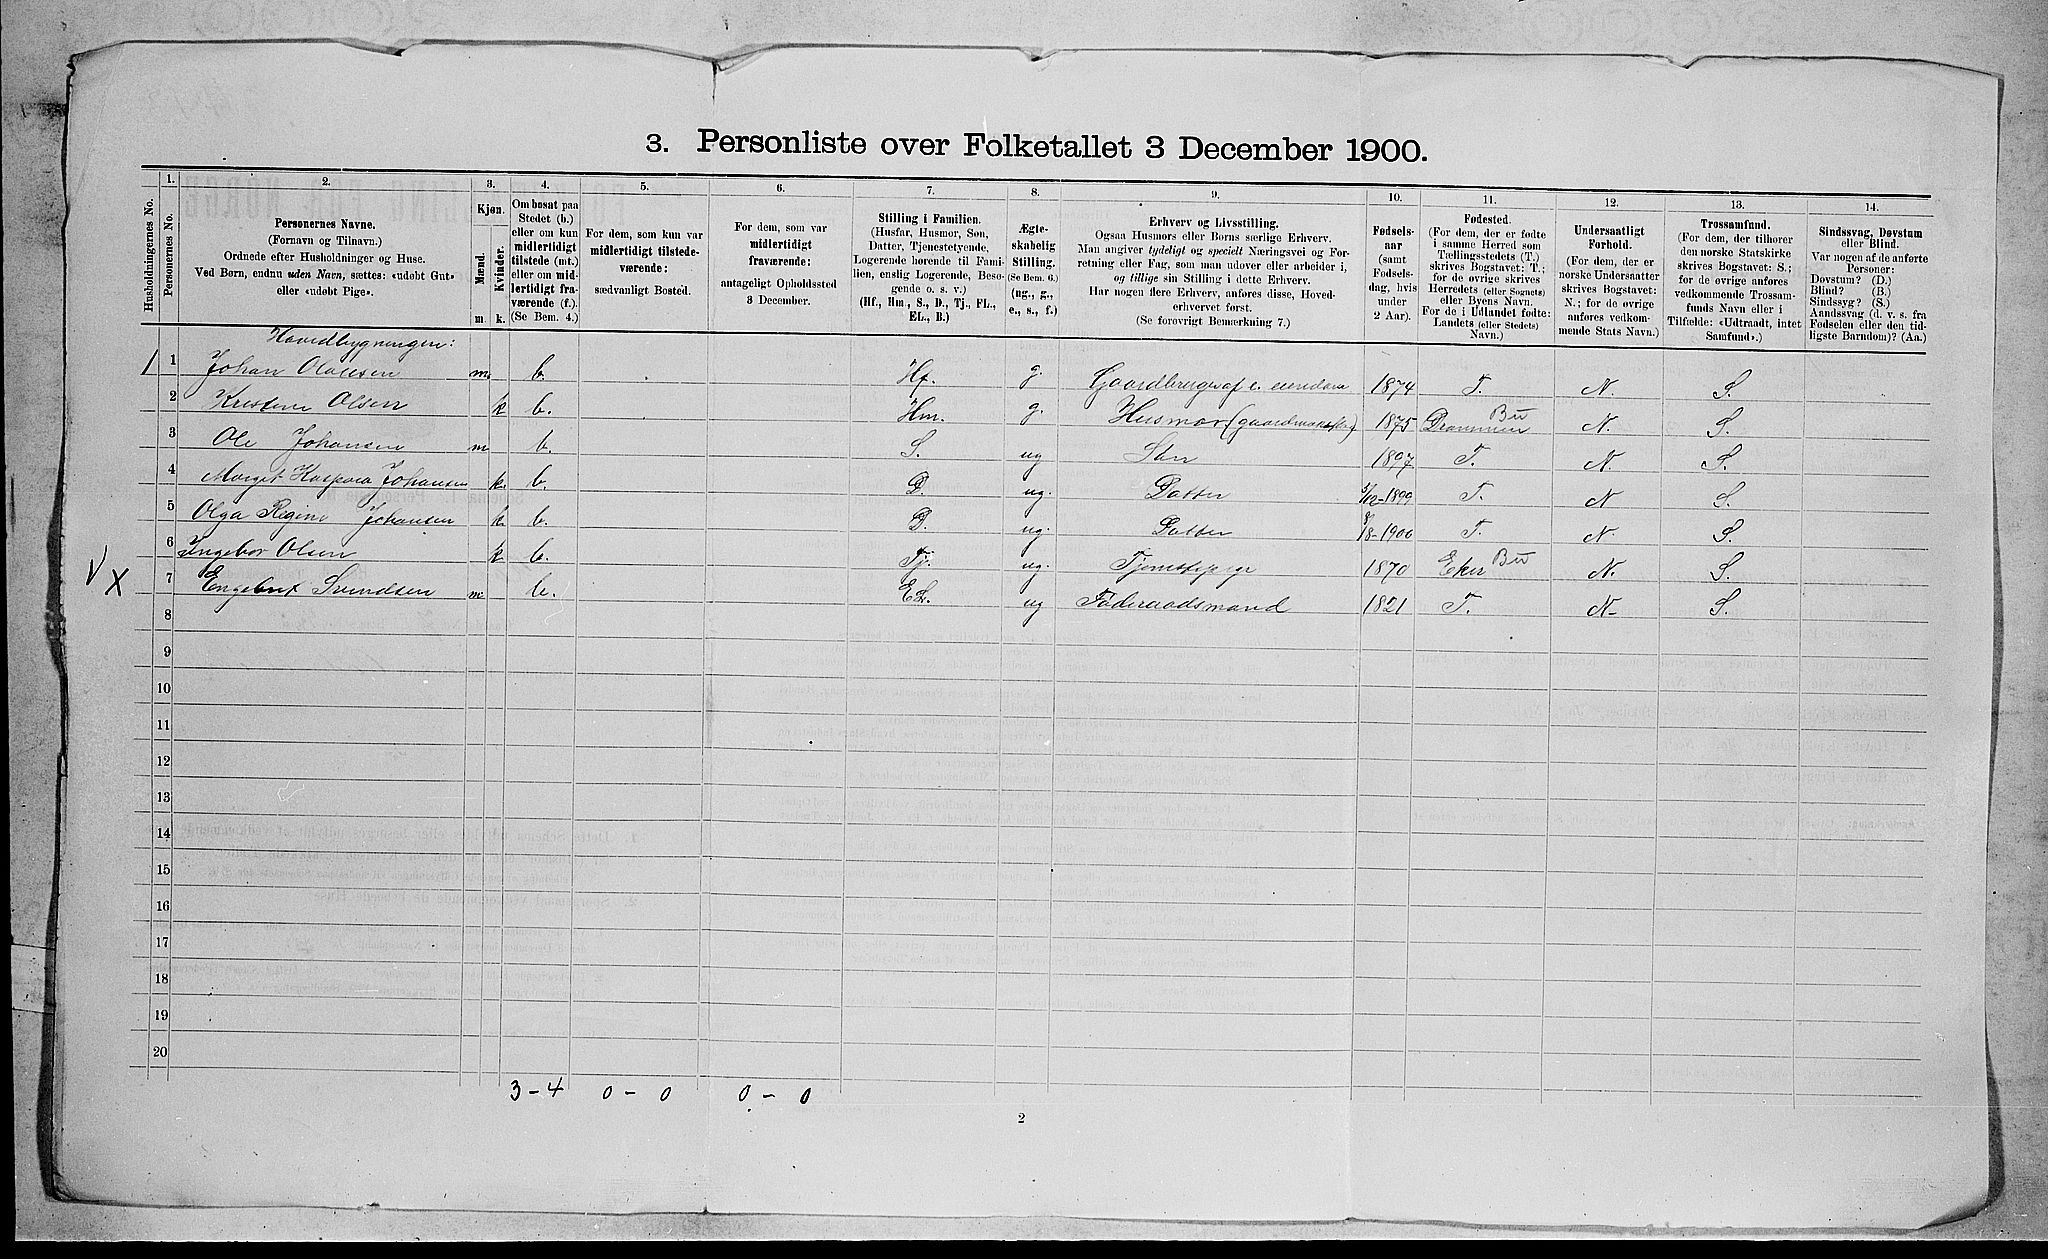 3. Personliste over Folketallet 3 December 1900.
1. 2. 3. 4. 5. 6. 7. 8. 9. 10. 11. 12. 13. 14.
Husholdningernes No.
Personernes No.
Personernes Navne.
(Fornavn og Tilnavn.)
Ordnede efter Husholdninger og Huse.
Ved Børn, endnu uden Navn, sættes: «udøbt Gut»
eller «udøbt Pige».
Kjøn.
Mænd.
Kvinder.
m. k.
Om bosat paa
Stedet (b.)
eller om kun
midlertidigt
tilstede (mt.)
eller om mid-
lertidigt fra-
værende (f.).
(Se Bem. 4.)
For dem, som kun var
midlertidigt tilstede-
værende:
sædvanligt Bosted.
For dem, som var
midlertidigt
fraværende:
antageligt Opholdssted
3 December.
Stilling i Familien.
(Husfar, Husmor, Søn,
Datter, Tjenestetyende,
Logerende hørende til Fami-
lien, enslig Logerende, Besø-
gende o. s. v.)
(Hf., Hm., S., D., Tj., FL.,
EL., B.)
Ægte-
skabelig
Stilling.
(Se Bem. 6.)
(ug., g.,
e., s., f.)
Erhverv og Livsstilling.
Ogsaa Husmors eller Børns særlige Erhverv.
Man angiver tydeligt og specielt Næringsvei og For-
retning eller Fag, som man udover eller arbeider i,
og tillige sin Stilling i dette Erhverv.
Har nogen flere Erhverv, anføres disse, Hoved-
erhvervet først.
(Se forøvrigt Bemærkning 7.)
Fødsels-
aar
(samt
Fødsels-
dag, hvis
under
2 Aar).
Fødested.
(For dem, der er fødte
i samme Herred som
Tællingsstedets (T.)
skrives Bogstavet: T.;
for de øvrige skrives
Herredets (eller Sognets)
eller Byens Navn.
For de i Udlandet fødte:
Landets (eller Stedets)
Navn.)
Undersaatligt
Forhold.
(For dem, der er
norske Undersaatter
skrives Bogstavet:
N.; for de øvrige
anføres vedkom-
mende Stats Navn.)
Trossamfund.
(For dem, der tilhører
den norske Statskirke
skrives Bogstavet: S.;
for de øvrige anføres
vedkommende Trossam-
funds Navn eller i
Tilfælde: «Udtraadt, intet
Samfund».)
Sindssvag, Døvstum
eller Blind.
Var nogen af de anførte
Personer:
Døvstum? (D.)
Blind? (B.)
Sindssyg? (S.)
Aandssvag (d. v. s. fra
Fødselen eller den tid-
ligste Barndom)? (Aa.)
Hovedbygningen:
1 1 Johan Olausen m. b. Hf. g. Gaardbruger af e. eiendom 1874 T. N. S.
2 Kristine Olsen k b. Hm. g. Husmor 1875 Drammen Bu N. S.
3 Ole Johansen m b. S. ug Søn 1897 T. N. S.
4 Marget Kaspara Johansen k. b. D. ug. Datter 5/12-1899 T. N S.
5 Olga Regine Johansen k. b. D. ug. Datter 8-1900 T. N. S.
6 Ingebor Olsen k b. Tj. ug. Tjenestepige 1870 Eker Bu N. S.
V X 7 Engebret Svendsen m. b. EL. ug Føderaadsmand 1821 T. N- S.
8
9
10
11
12
13
14
15
16
17
18
19
20
3-4 0-0 0-0
2